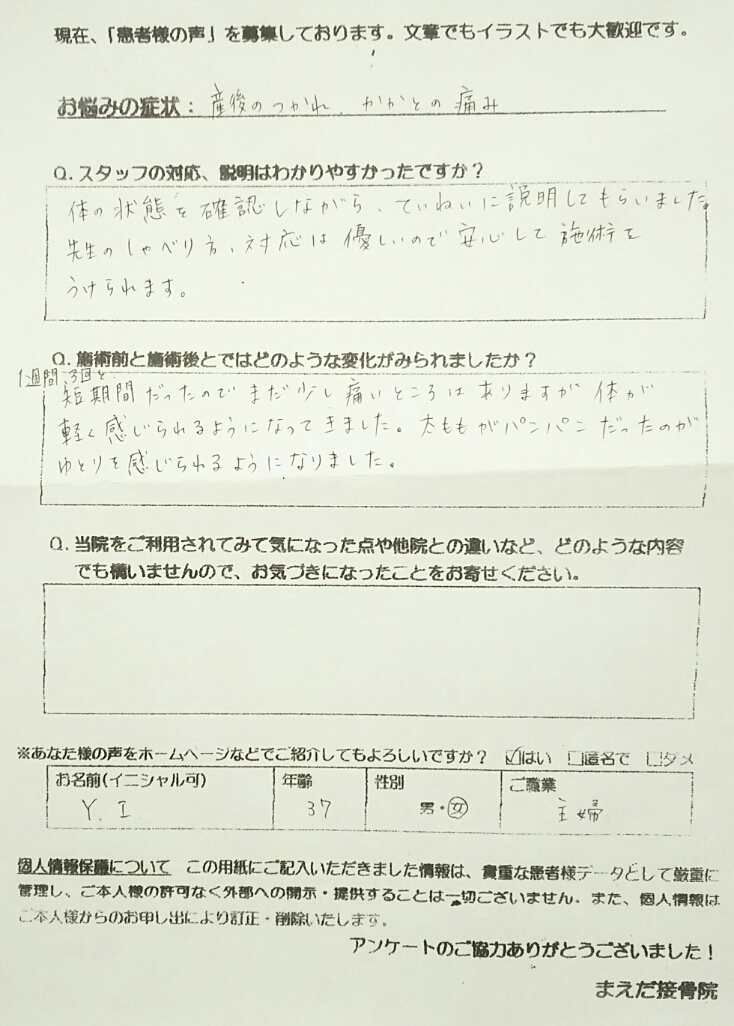 現在、「患者様の声」を募集しております。文章でもイラストでも大歓迎です。
お悩みの症状：産後のつかれ、かかとの痛み
Q.スタッフの対応、説明はわかりやすかったですか？
体の状態を確認しながら、ていねいに説明してもらいました。
先生のしゃべり方、対応は優しいので安心して施術を
うけられます。
Q.施術前と施術後とではどのような変化がみられましたか？
1週間、3回と
短期間だったのでまだ少し痛いところはありますが体が
軽く感じられるようになってきました。太ももがパンパンだったのが
ゆとりを感じられるようになりました。
Q.当院をご利用されてみて気になった点や他院との違いなど、どのような内容
でも構いませんので、お気づきになったことをお寄せください。
※あなた様の声をホームページなどでご紹介してもよろしいですか？ ☑はい □匿名で □ダメ
お名前(イニシャル可) 年齢 性別 ご職業
Y.I 37 男・女 主婦
個人情報保護について この用紙にご記入いただきました情報は、貴重な患者様データとして厳重に
管理し、ご本人様の許可なく外部への開示・提供することは一切ございません。また、個人情報は
ご本人様からのお申し出により訂正・削除いたします。
アンケートのご協力ありがとうございました！
まえだ接骨院